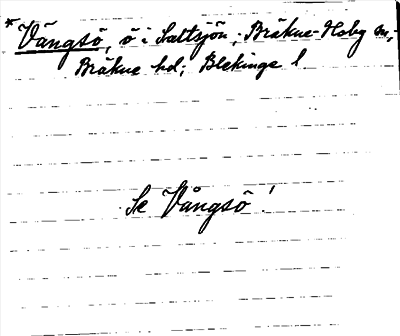 *Vängsö, ö i Saltsjön; Bräkne-Hoby sn;
Bräkne hd; Blekinge l
Se Vångsö!